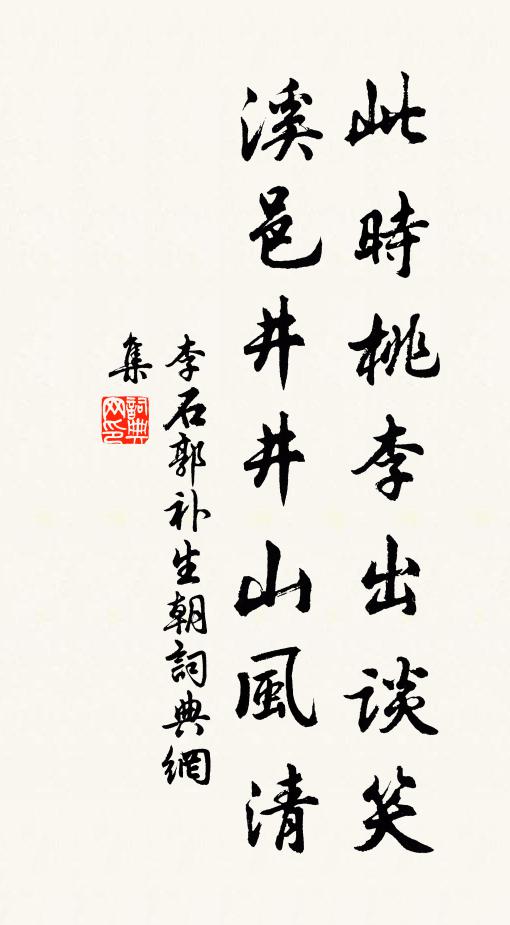 此時桃李出谈笑
溪邑井井山風清
李石郭补生朝詞典網
集
詞典网印